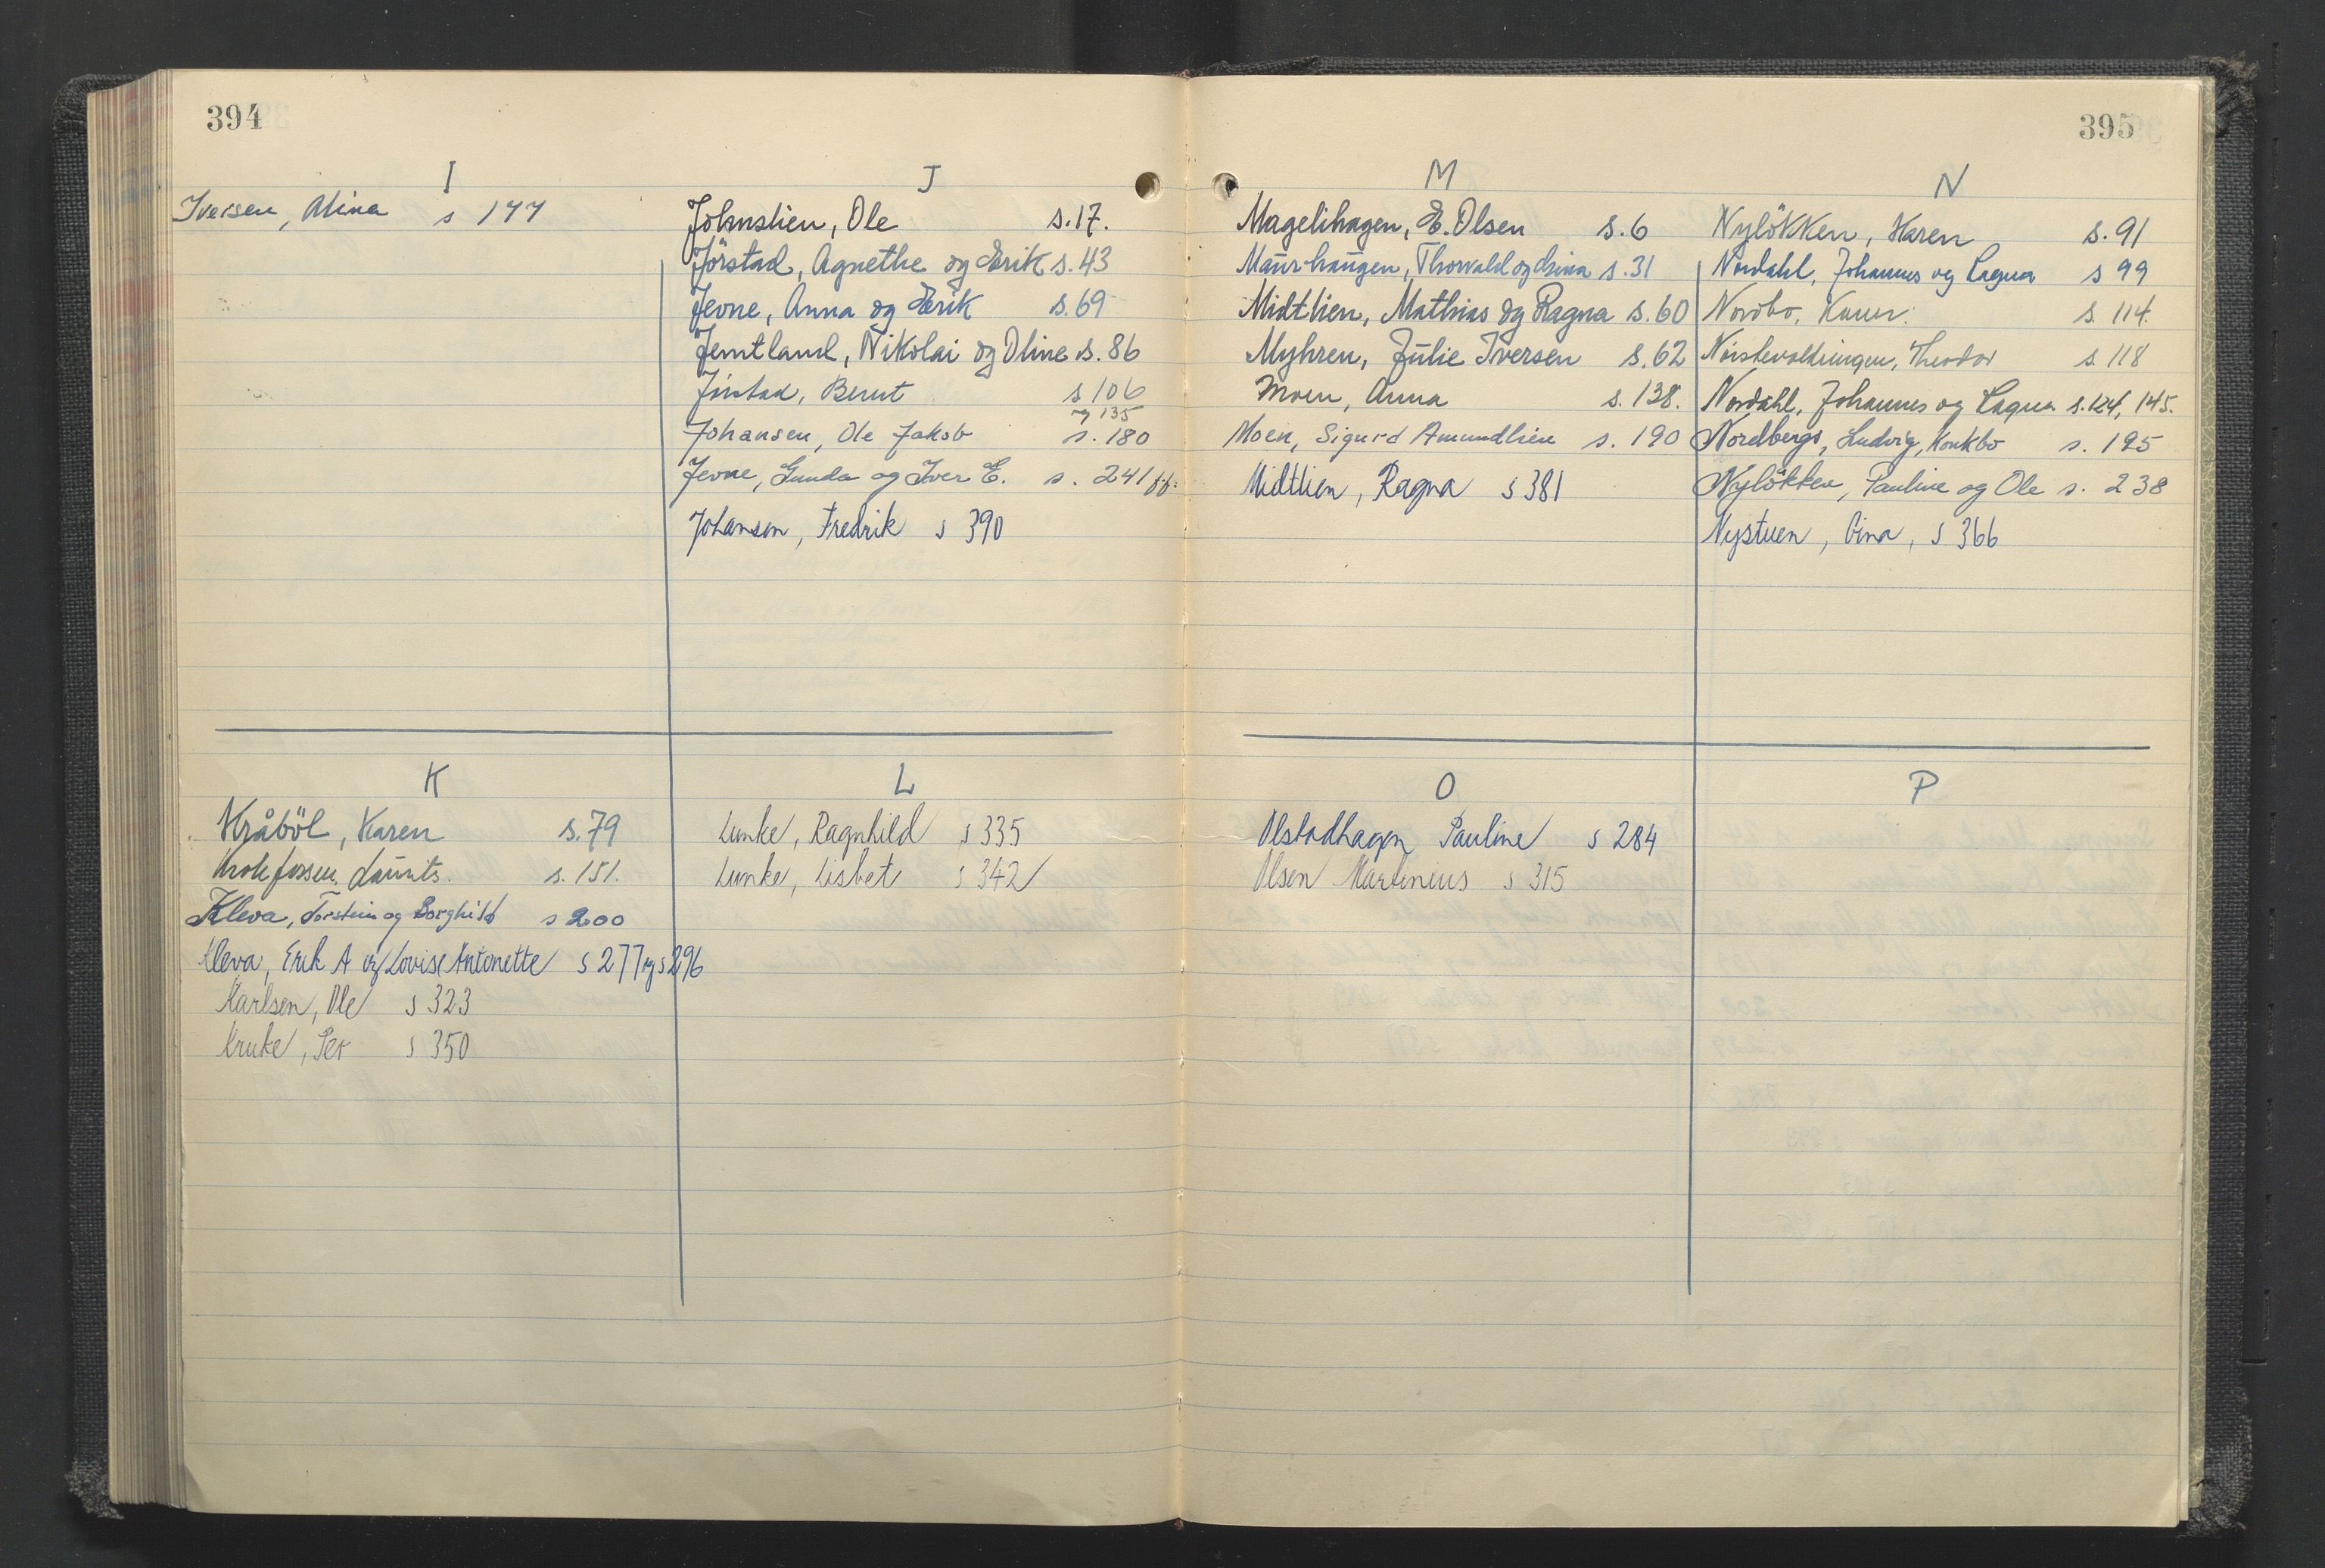 394
I
Iversen, Alina s 177
J
Johnslien, Ole s.17.
Jörstad, Agnethe og Erik s.43
Jevne, Anna og Erik s.69
Jemtland, Nikolai og Oline s.86
Jörstad, Bernt s 106
og 135
Johansen, Ole Jakob s.180
Jevne, Gunda og Iver E. s. 241 ff.
Johansen, Fredrik s 390
K
Kråböl, Karen s.79
Laurits. s.151.
Kleva, Torstein og Borghild s 200
Kleva, Erik A og Lovise Antonette s 277 og s 296
Karlsen, Ole s 323
Kruke, Per s 350
L
Lunke, Ragnhild s 335
Lunke, Lisbet s 342
395
M
Magelihagen, E. Olsen s.6
Maurhaugen, Thorvald og s.31
Midtlien, Mathias og Ragna s.60
Myhren, Julie Iversen s.62
Moen, Anna s.138.
Moen, Sigurd Amundlien s. 190
Midtlien, Ragna s 381
N
Nylökken, Karen s.91
Nordahl, Johannes og Lagna s 99
Nordbo, Karen. s. 114.
Theodor s. 118
Nordahl, Johannes og Lagna s.124, 145.
Nordberg, Ludvig, s. 195
Nylökken, Pauline og Ole s. 238
Nystuen, Gina, s 366
O
Olstadhagen Pauline s 284
Olsen Martinius s 315
P